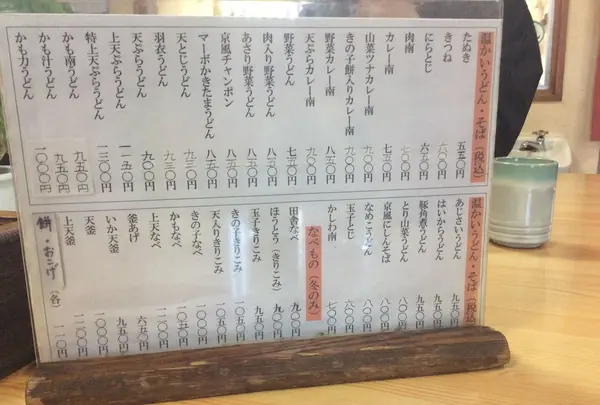 温かいうどん・そば(税込)
たぬき 五五〇円
きつね 六〇〇円
にらとじ 六五〇円
肉南 七〇〇円
カレー南 七五〇円
山菜ツナカレー南 九〇〇円
きの子餅入りカレー南 九〇〇円
野菜カレー南 八五〇円
天ぷらカレー南 九〇〇円
野菜うどん 七五〇円
肉入り野菜うどん 八五〇円
あさり野菜うどん 八五〇円
京風チャンポン 八五〇円
マーボかきたまうどん 八五〇円
天とじうどん 九三〇円
羽衣うどん 九三〇円
天ぷらうどん 九〇〇円
上天ぷらうどん 一一五〇円
特上天ぷらうどん 一三〇〇円
かも南うどん 九五〇円
かも汁うどん 九五〇円
かも力うどん 一〇〇〇円
温かいうどん・そば(税込
あじさいうどん 九五〇
はいからうどん 九五〇円
豚角煮うどん 九五〇円
とり山菜うどん 八〇〇円
京風にしんそば 八〇〇円
なめこうどん 八〇〇円
玉子とじ 六〇〇円
かしわ南 七〇〇円
なべもの(冬のみ)
田舎なべ 九〇〇円
ほうとう(きりこみ) 九〇〇円
玉子きりこみ 九五〇円
きの子きりこみ 九五〇円
天入りきりこみ 一〇〇〇円
きの子なべ 一〇〇〇円
かもなべ 一〇五〇円
上天なべ 一〇五〇円
釜あげ 六五〇円
いか天釜 九五〇円
天釜 一〇〇〇円
上天釜
餅・おこげ(各) 一一〇円